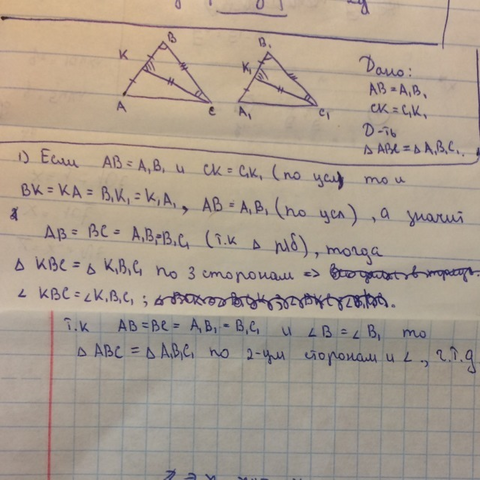 B
K
A
C
B₁
K₁
A₁
C₁
Дано:
AB = A₁B₁
CK = C₁K₁
Д-ть
△ ABC = △ A₁B₁C₁.
1) Если AB = A₁B₁ и CK = C₁K₁ (по усл) то и
BK = KA = B₁K₁ = K₁A₁, AB = A₁B₁ (по усл), а значит
AB = BC = A₁B₁ = B₁C₁ (т.к △ р/б), тогда
△ KBC = △ K₁B₁C₁ по 3 сторонам =>
∠ KBC = ∠ K₁B₁C₁;
т.к AB = BC = A₁B₁ = B₁C₁ и ∠B = ∠B₁ то
△ ABC = △ A₁B₁C₁ по 2-ум сторонам и ∠, ч.т.д